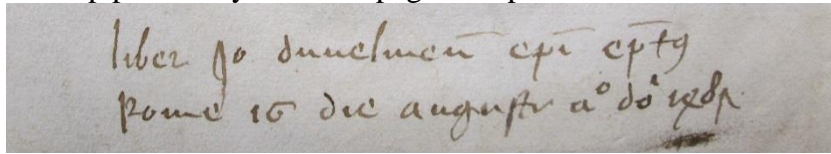 liber Jo dunelmen̄ ep̄i ep̄tꝯ
Rome 16 die augusti a° do͡ 1487